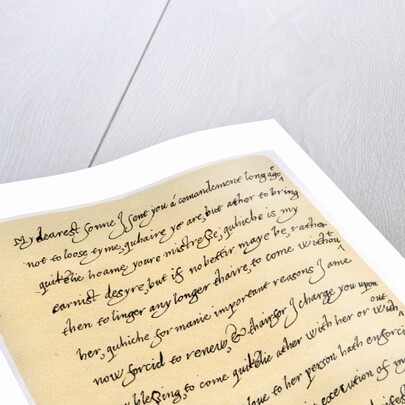 My dearest sonne J sent you a comandement long ago
not to loose tyme, quhaire ye are, but ather to bring
quikelie hoame youre mistresse, quhiche is my
earnist desyre, but if no bettir maye be, rather
then to linger any longer thaire, to come without
her, quhiche for manie important reasons J ame
now forcid to renew, & thairfor J charge you upon
my blessing, to come quikelie ather with her or without
to her person hath enforcid
execution of